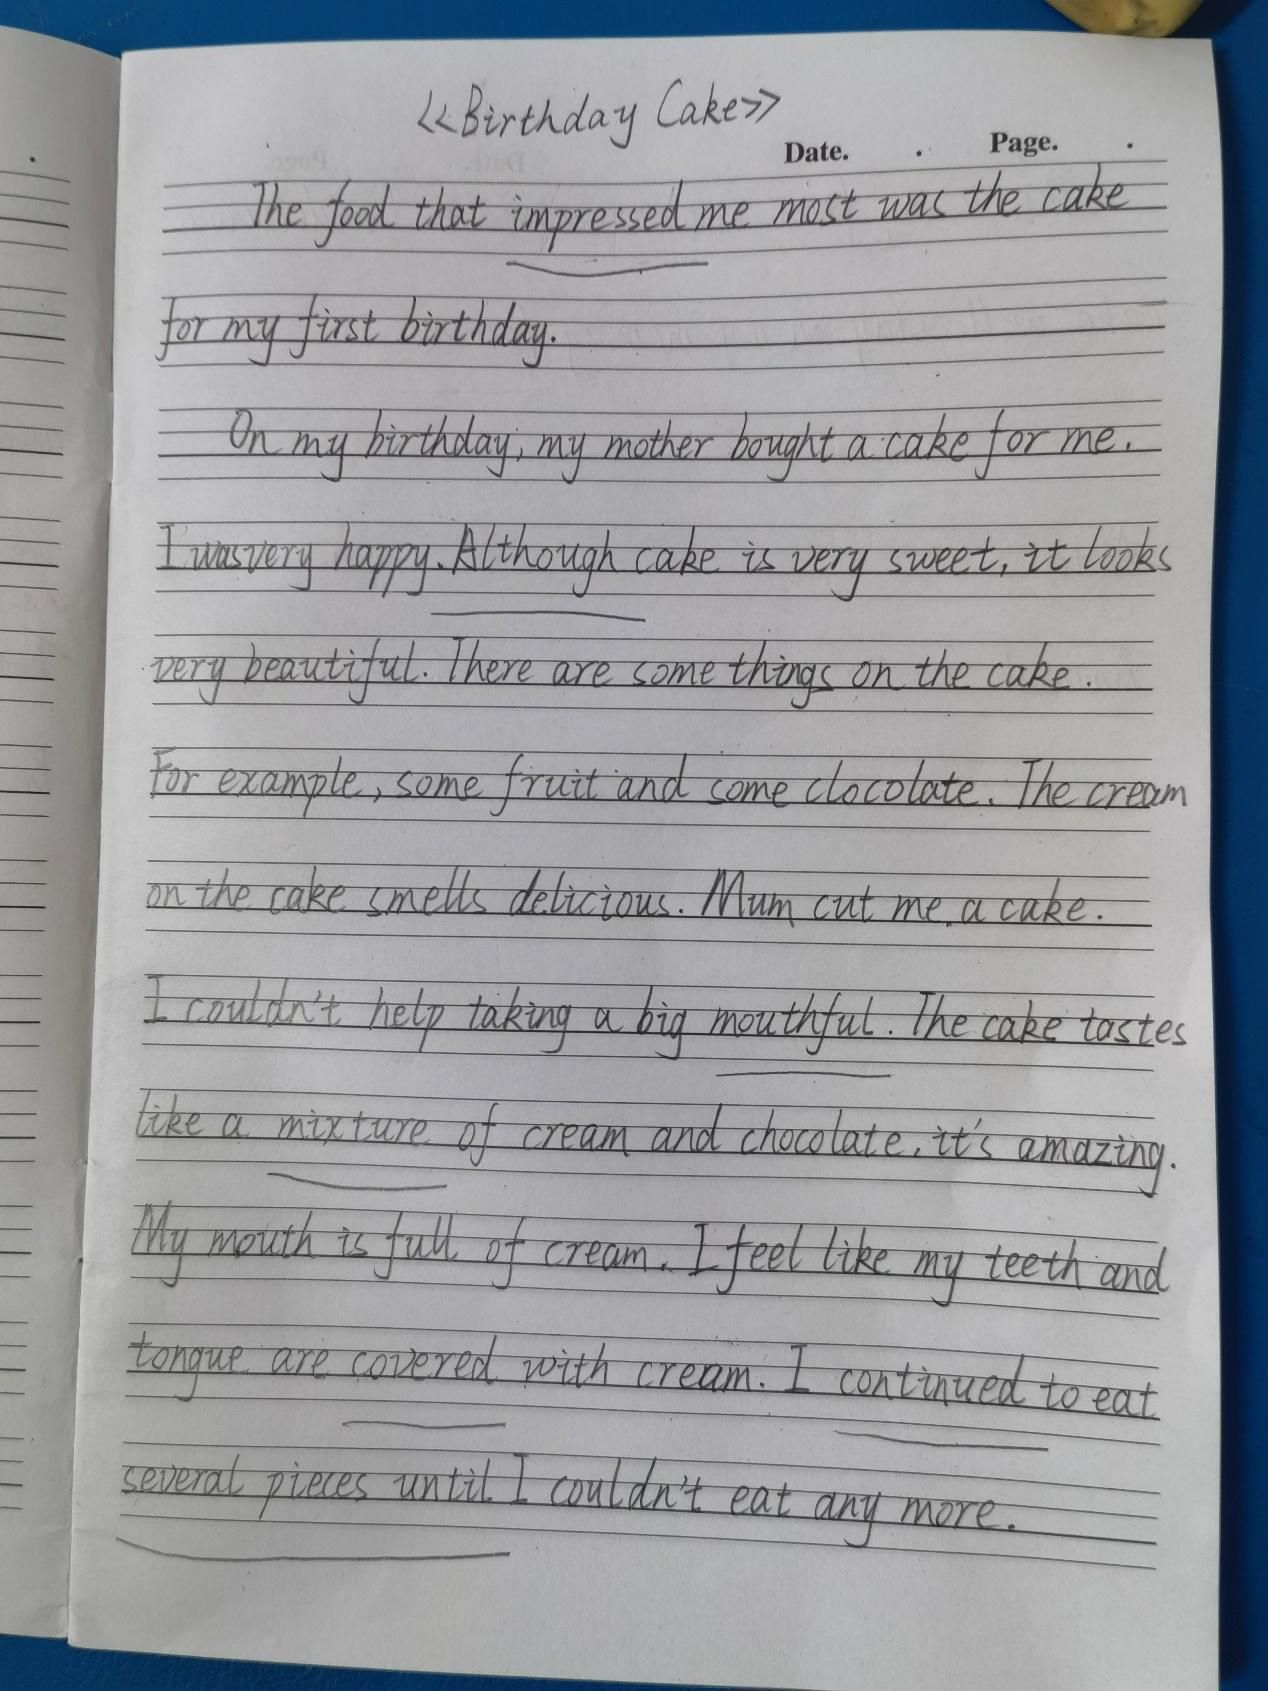 <<Birthday Cake>>
Date. . Page. .
The food that impressed me most was the cake
for my first birthday.
On my birthday, my mother bought a cake for me.
I was very happy. Although cake is very sweet, it looks
very beautiful. There are some things on the cake.
For example, some fruit and some clocolate. The cream
on the cake smells delicious. Mum cut me a cake.
I couldn't help taking a big mouthful. The cake tastes
like a mixture of cream and chocolate, it's amazing.
My mouth is full of cream. I feel like my teeth and
tongue are covered with cream. I continued to eat
several pieces until I couldn't eat any more.